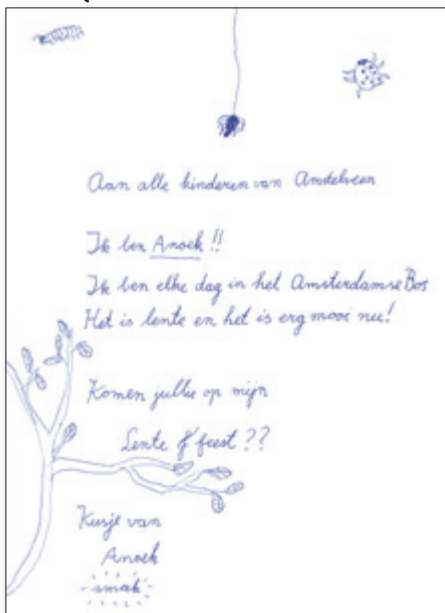 Aan alle kinderen van Amstelveen
Ik ben Anoek!!
Ik ben elke dag in het Amsterdamse Bos
Het is lente en het is erg mooi nu!
Komen jullie op mijn
Lente feest??
Kusje van
Anoek
smak